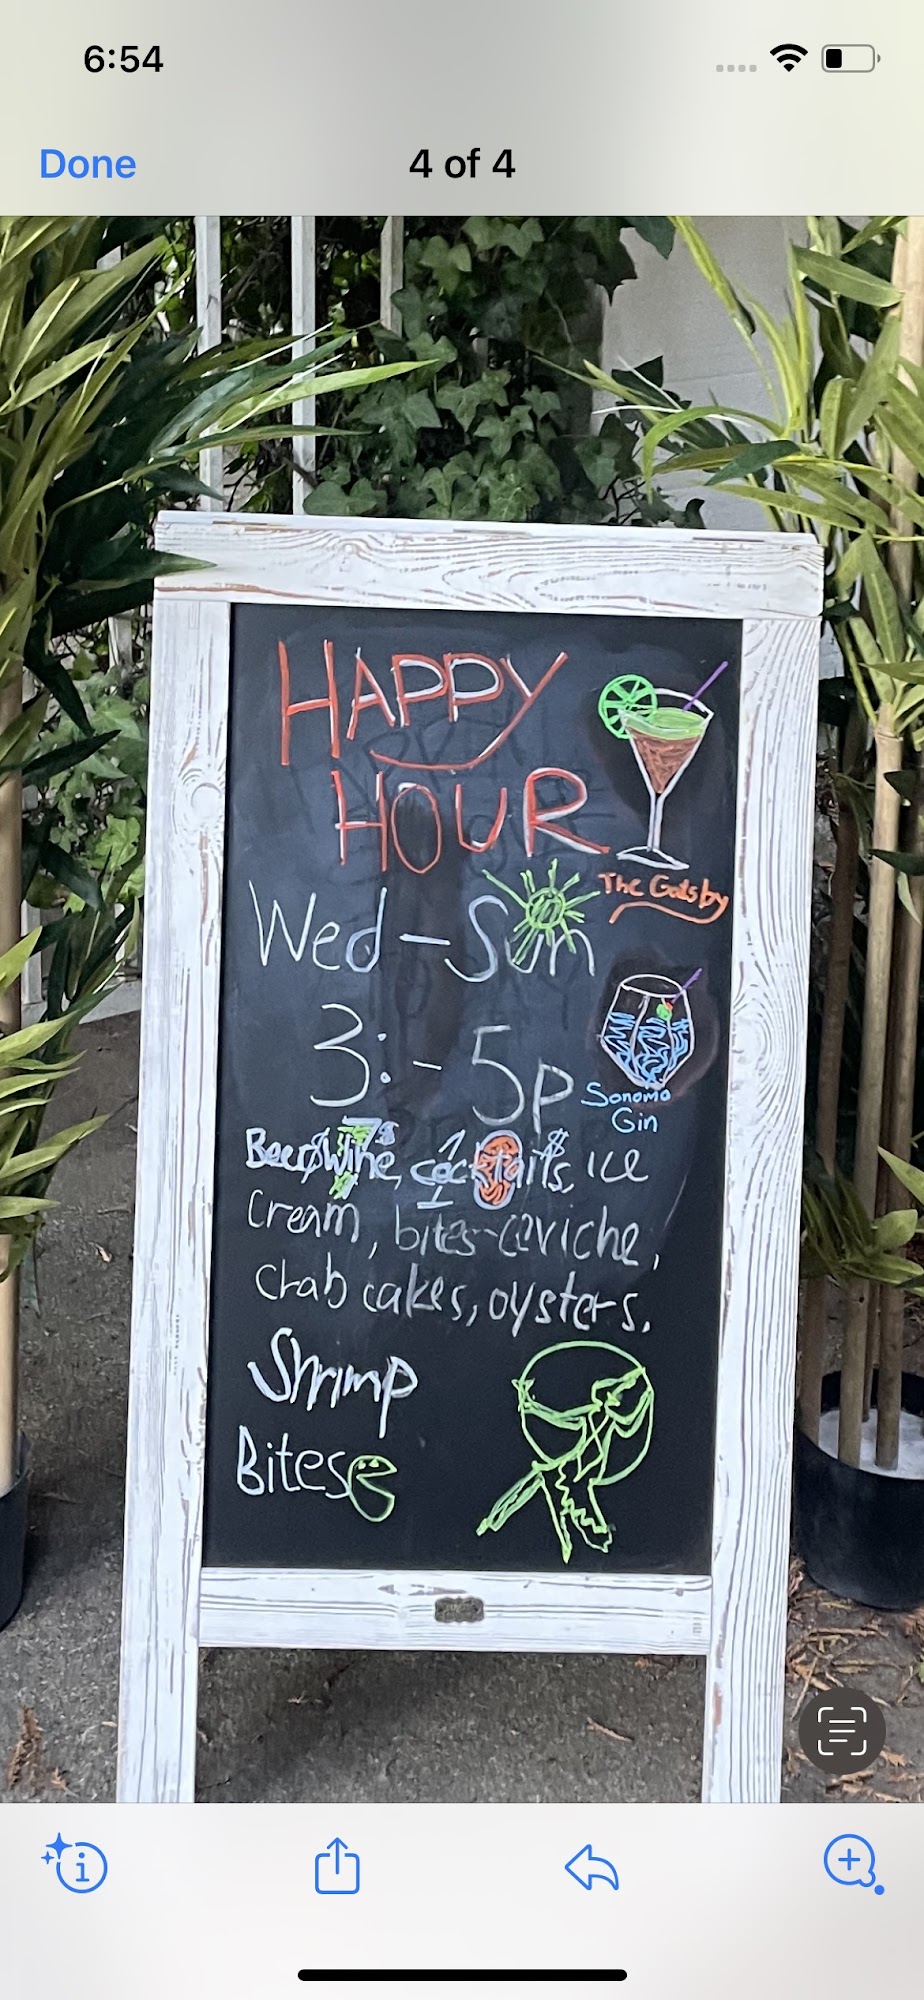 6:54
Done
4 of 4
HAPPY
HOUR
The Gatsby
Wed-Sun
3:-5p
Sonoma
Gin
Beer, Wine, cocktails, ice
cream, bites-ceviche,
crab cakes, oysters.
Shrimp
Bites